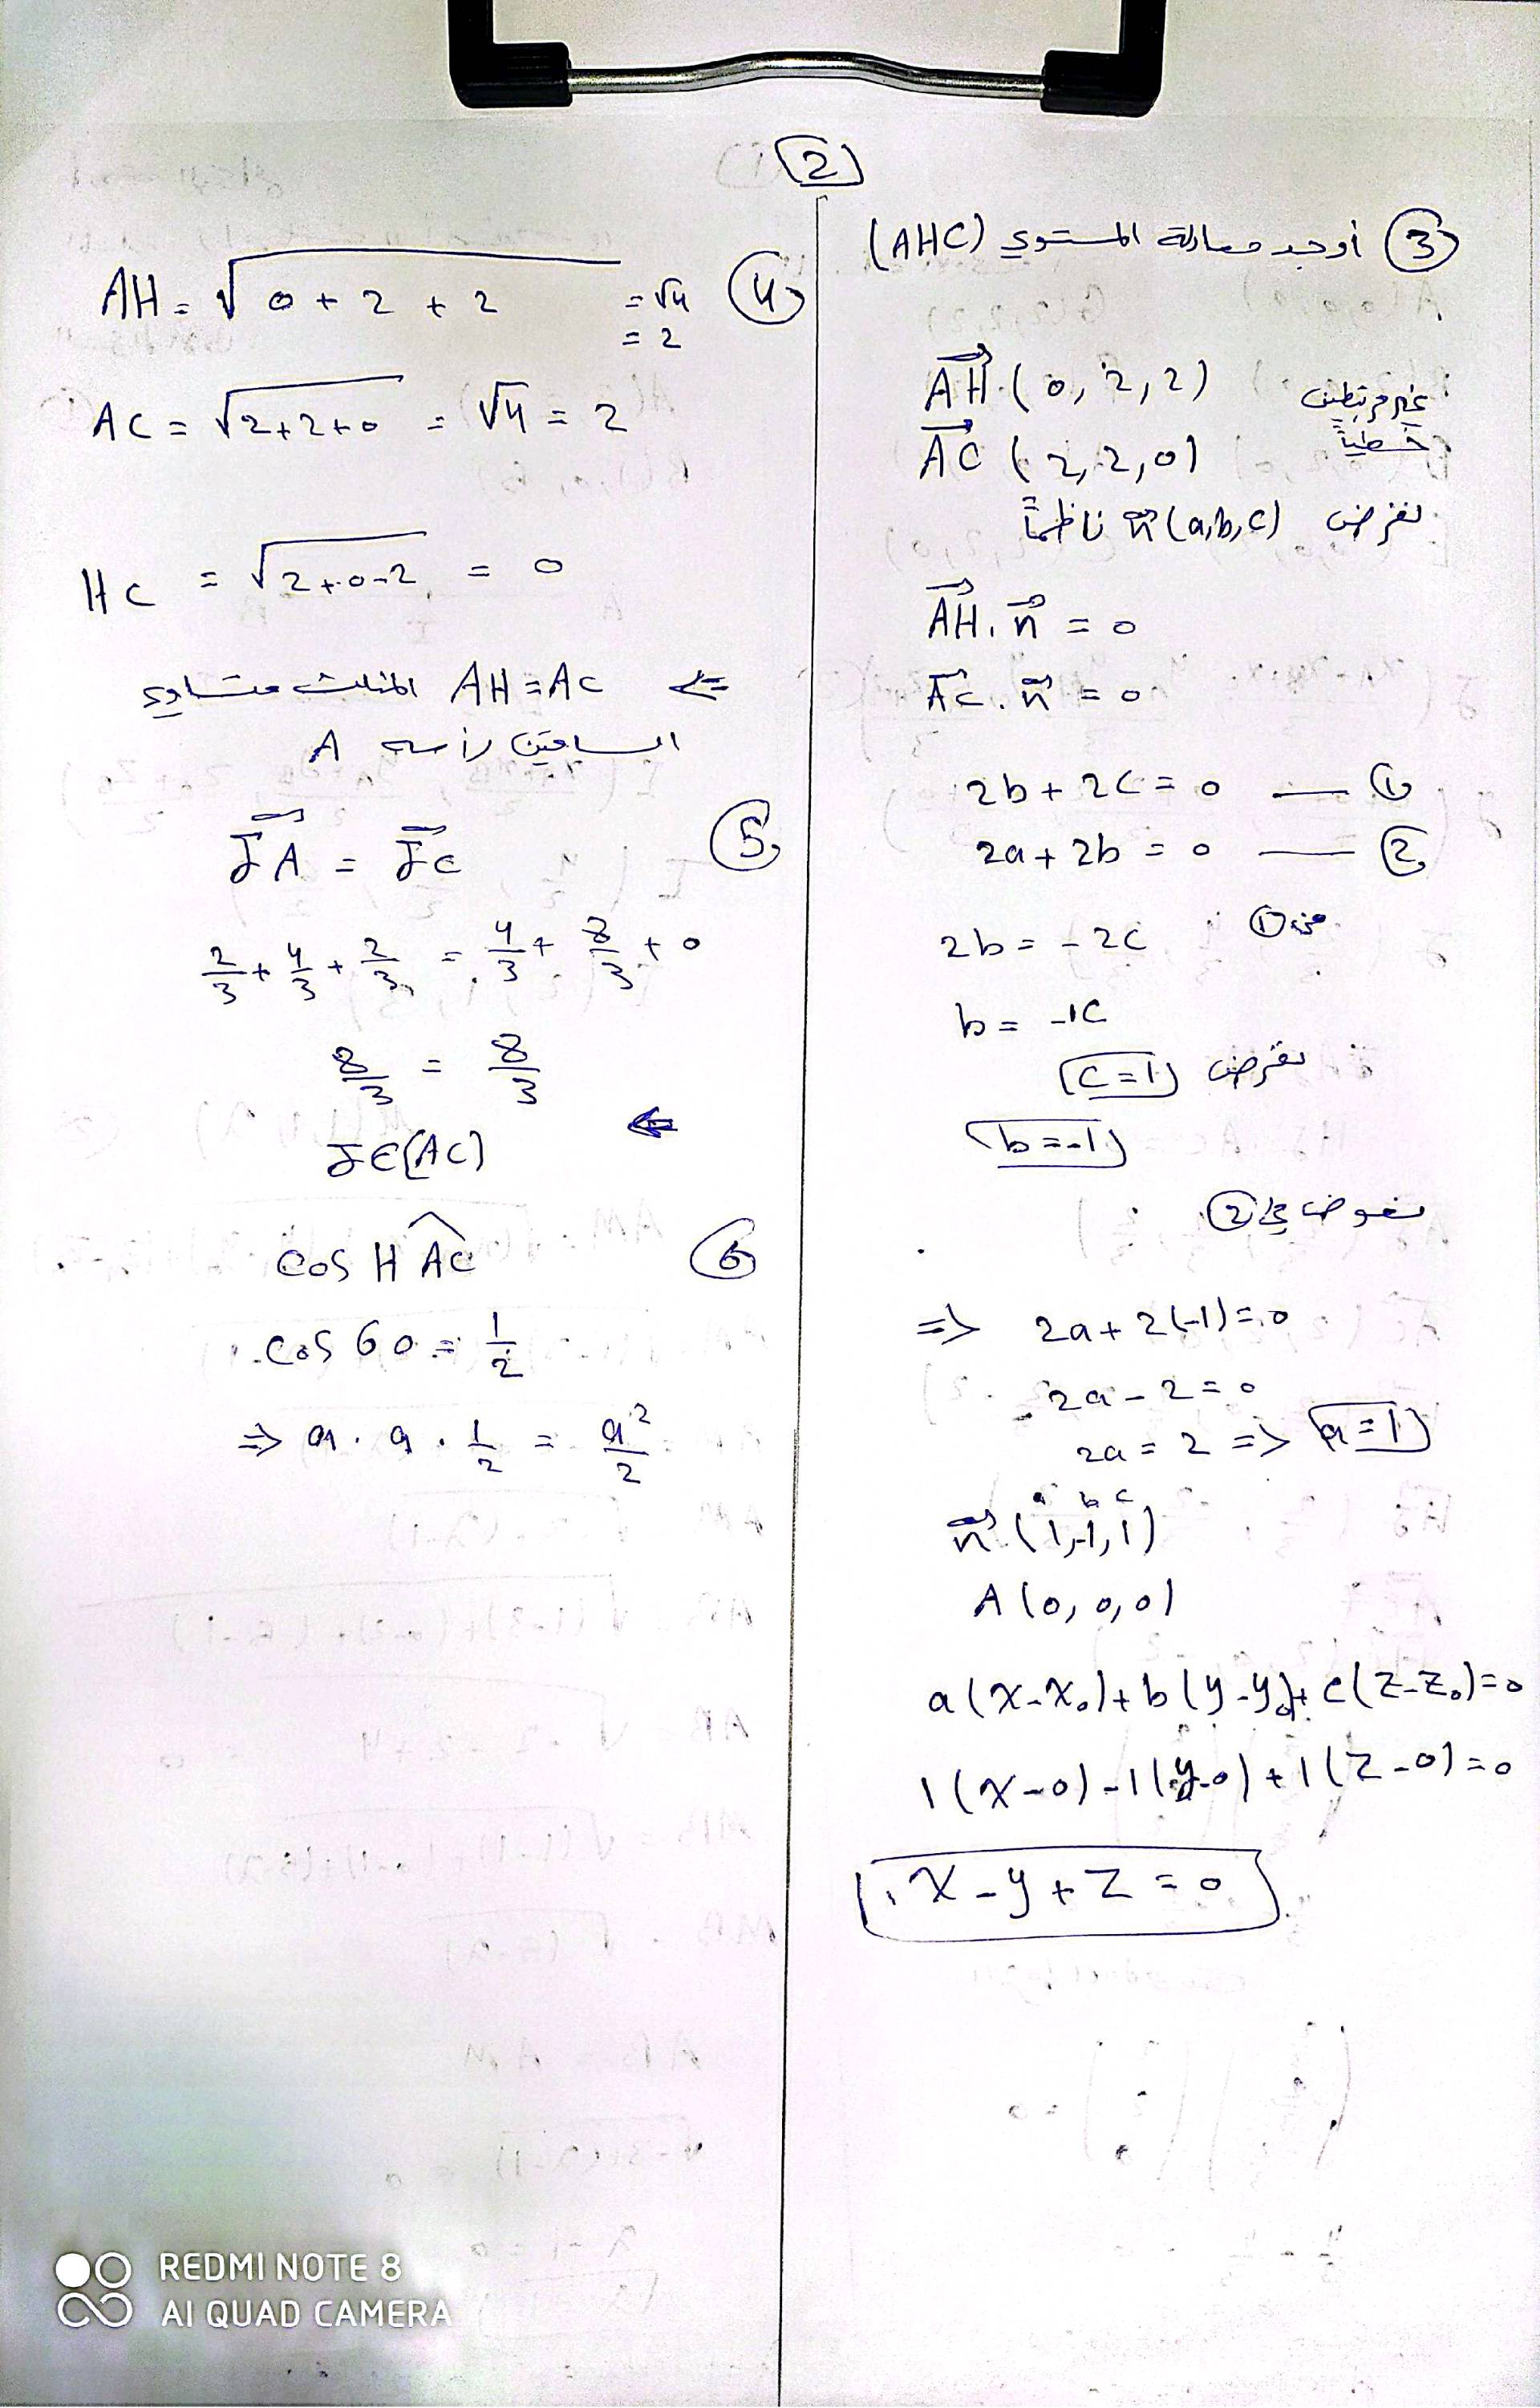 2
③ أوجد معادلة المستوي (AHC)
AH (0, 2, 2) غير مرتبطين
AC (2, 2, 0) خطياً
نفرض n (a, b, c) ناظماً
AH . n = 0
AC . n = 0
2b + 2c = 0 — ①
2a + 2b = 0 — ②
من ①
2b = - 2c
b = -1c
نفرض c = 1
b = -1
نعوض في ②
=> 2a + 2(-1) = 0
2a - 2 = 0
2a = 2 => a = 1
a b c
n (1, -1, 1)
A (0, 0, 0)
a(x - x₀) + b(y - y₀) + c(z - z₀) = 0
1(x - 0) - 1(y - 0) + 1(z - 0) = 0
x - y + z = 0
④ AH = √0 + 2 + 2 = √4
= 2
AC = √2 + 2 + 0 = √4 = 2
HC = √2 + 0 - 2 = 0
<= AH = AC المثلث متساوي
الساقين رأسه A
⑤ JA = JC
2/3 + 4/3 + 2/3 = 4/3 + 8/3 + 0
8/3 = 8/3
<=
J ∈ [AC]
⑥ cos HAC
cos 60 = 1/2
=> a . a . 1/2 = a²/2
REDMI NOTE 8
AI QUAD CAMERA